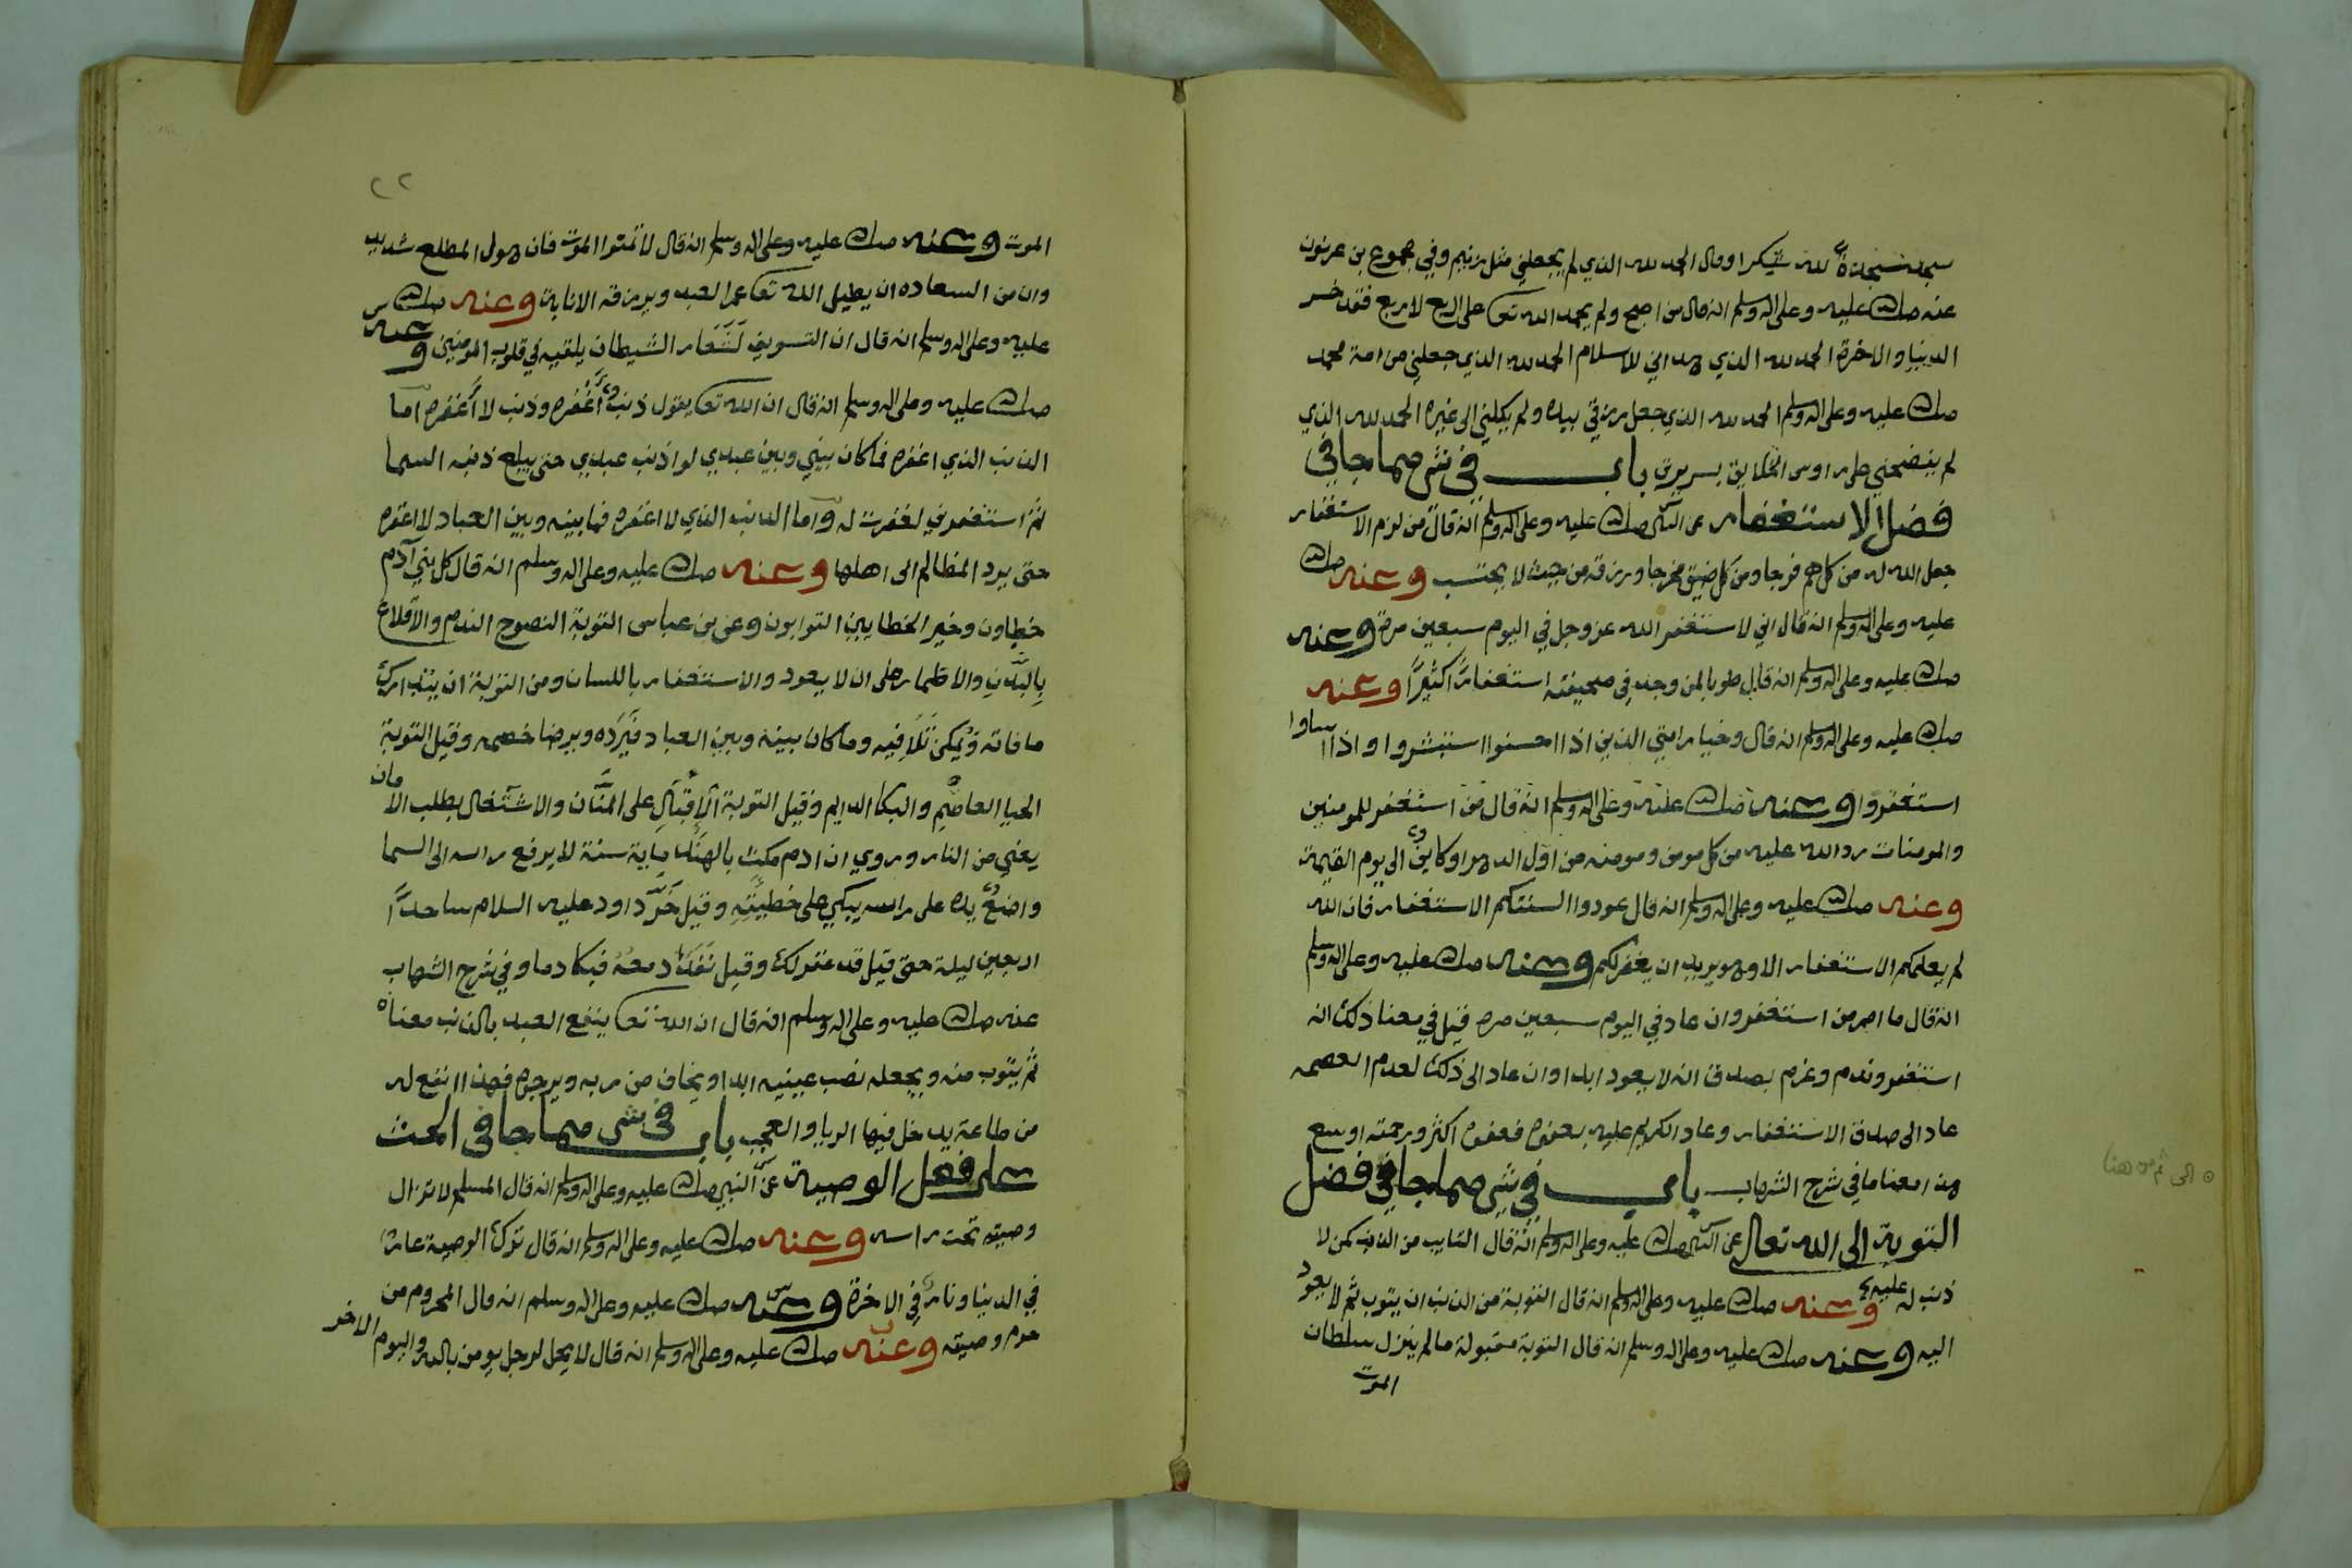 سجد سجدة لله شكرا وقال الحمد لله الذي لم يجعلني مثل زنيم وفي مجموع بن عرنون
عنه صلى الله عليه وعلى اله وسلم انه قال من اصبح ولم يحمد الله تعا على اربع لا مربع فقد خسر
الدينا والاخرة الحمد لله الذي هداني للاسلام الحمد لله الذي جعلني من امة محمد
صلى الله عليه وعلى اله وسلم الحمد لله الذي جعل رزقي بيده ولم يكلني الى غيره الحمد لله الذي
لم يفضحني على راوس الخلايق بسريرتي باب في شي مما جا في
فضل الاستغفار عن النبي صلى الله عليه وعلى اله وسلم انه قال من لزم الاستغفار
جعل الله له من كل هم فرجا ومن كل ضيق مخرجا ورزقه من حيث لا يحتسب وعنه صلى الله
عليه وعلى اله وسلم انه قال اني لا ستغفر الله عز وجل في اليوم سبعين مرة وعنه
صلى الله عليه وعلى اله وسلم انه قال طوبا لمن وجد في صحيفته استغفارًا كثيرًا وعنه
صلى الله عليه وعلى اله وسلم انه قال وخيار امتي الذين اذا احسنوا استبشروا واذا اساوا
استغفروا وعنه صلى الله عليه وعلى اله وسلم انه قال من استغفر للمومنين
والمومنات رد الله عليه من كل مومن ومومنه من اول الدهر او كاين الى يوم القيمة
وعنه صلى الله عليه وعلى اله وسلم انه قال عودوا السنتكم الاستغفار فان الله
لم يعلمكم الاستغفار الا وهو يريد ان يغفر لكم وعنه صلى الله عليه وعلى اله وسلم
انه قال ما اصر من استغفر وان عاد في اليوم سبعين مره قيل في معنا ذلك انه
استغفر وندم وعزم بصدق انه لا يعود ابدا وان عاد الى ذلك لعدم العصمه
عاد الى صدق الاستغفار وعاد الكريم عليه بعفوه فعفوه اكثر ورحمته اوسع
هذا معنا ما في شرح الشهاب باب في شي مما جا في فضل
التوبة الى الله تعالى عن النبي صلى الله عليه وعلى اله وسلم انه قال التايب من الذنب كمن لا
ذنب له عليه وعنه صلى الله عليه وعلى اله وسلم انه قال التوبة من الذنب ان يتوب ثم لا يعود
اليه وعنه صلى الله عليه وعلى اله وسلم انه قال التوبة مقبولة ما لم ينزل سلطان
الموت
الى ثم من هنا
٢٢
الموت وعنه صلى الله عليه وعلى اله وسلم انه قال لا تمنوا الموت فان هول المطلع شديد
وان من السعاده ان يطيل الله تعا عمر العبد ويرزقه الانابة وعنه صلى الله
عليه وعلى اله وسلم انه قال ان التسويف شعار الشيطان يلقيه في قلوب المومنين وعنه
صلى الله عليه وعلى اله وسلم انه قال ان الله تعا يقول ذنب أغفره وذنب لا أغفره اما
الذنب الذي اغفره فما كان بيني وبين عبدي لو اذنب عبدي حتى يبلغ ذنبه السما
ثم استغفرني لغفرت له واما الذنب الذي لا اغفره فما بينه وبين العباد لا اغفره
حتى يرد المظالم الى اهلها وعنه صلى الله عليه وعلى اله وسلم انه قال كل بني آدم
خطاون وخير الخطايين التوابون وعن بن عباس التوبة النصوح الندم والاقلاع
بالبدن والاظمار على ان لا يعود والاستغفار باللسان ومن التوبة ان يتدارك
ما فاته ويمكن تلافيه وما كان بينه وبين العباد فيرده ويرضا خصمه وقيل التوبة
الحيا العاصم والبكا الدايم وقيل التوبة الإقبال على المنان والاشتغال بطلب الامان
يعني من النار وروي ان ادم مكث بالهند ماية سنة لا يرفع راسه الى السما
واضع يده على راسه يبكي على خطيئته وقيل خر داود عليه السلام ساجدًا
اربعين ليلة حتى قيل قد غفر لك وقيل نفد دمعه فبكا دما وفي شرح الشهاب
عنه صلى الله عليه وعلى اله وسلم انه قال ان الله تعا ينفع العبد بالذنب معناه
ثم يتوب منه ويجعله نصب عينيه ابدا ويخاف من ربه ويرجوه فهذا انفع له
من طاعة يدخل فيها الريا والعجب باب في شي مما جا في الحث
على فعل الوصية عن النبي صلى الله عليه وعلى اله وسلم انه قال المسلم لا تزال
وصيته تحت راسه وعنه صلى الله عليه وعلى اله وسلم انه قال ترك الوصية عار
في الدينا ونار في الاخرة وعنه صلى الله عليه وعلى اله وسلم انه قال المحروم من
حرم وصيته وعنه صلى الله عليه وعلى اله وسلم انه قال لا يحل لرجل يومن بالله واليوم الاخر